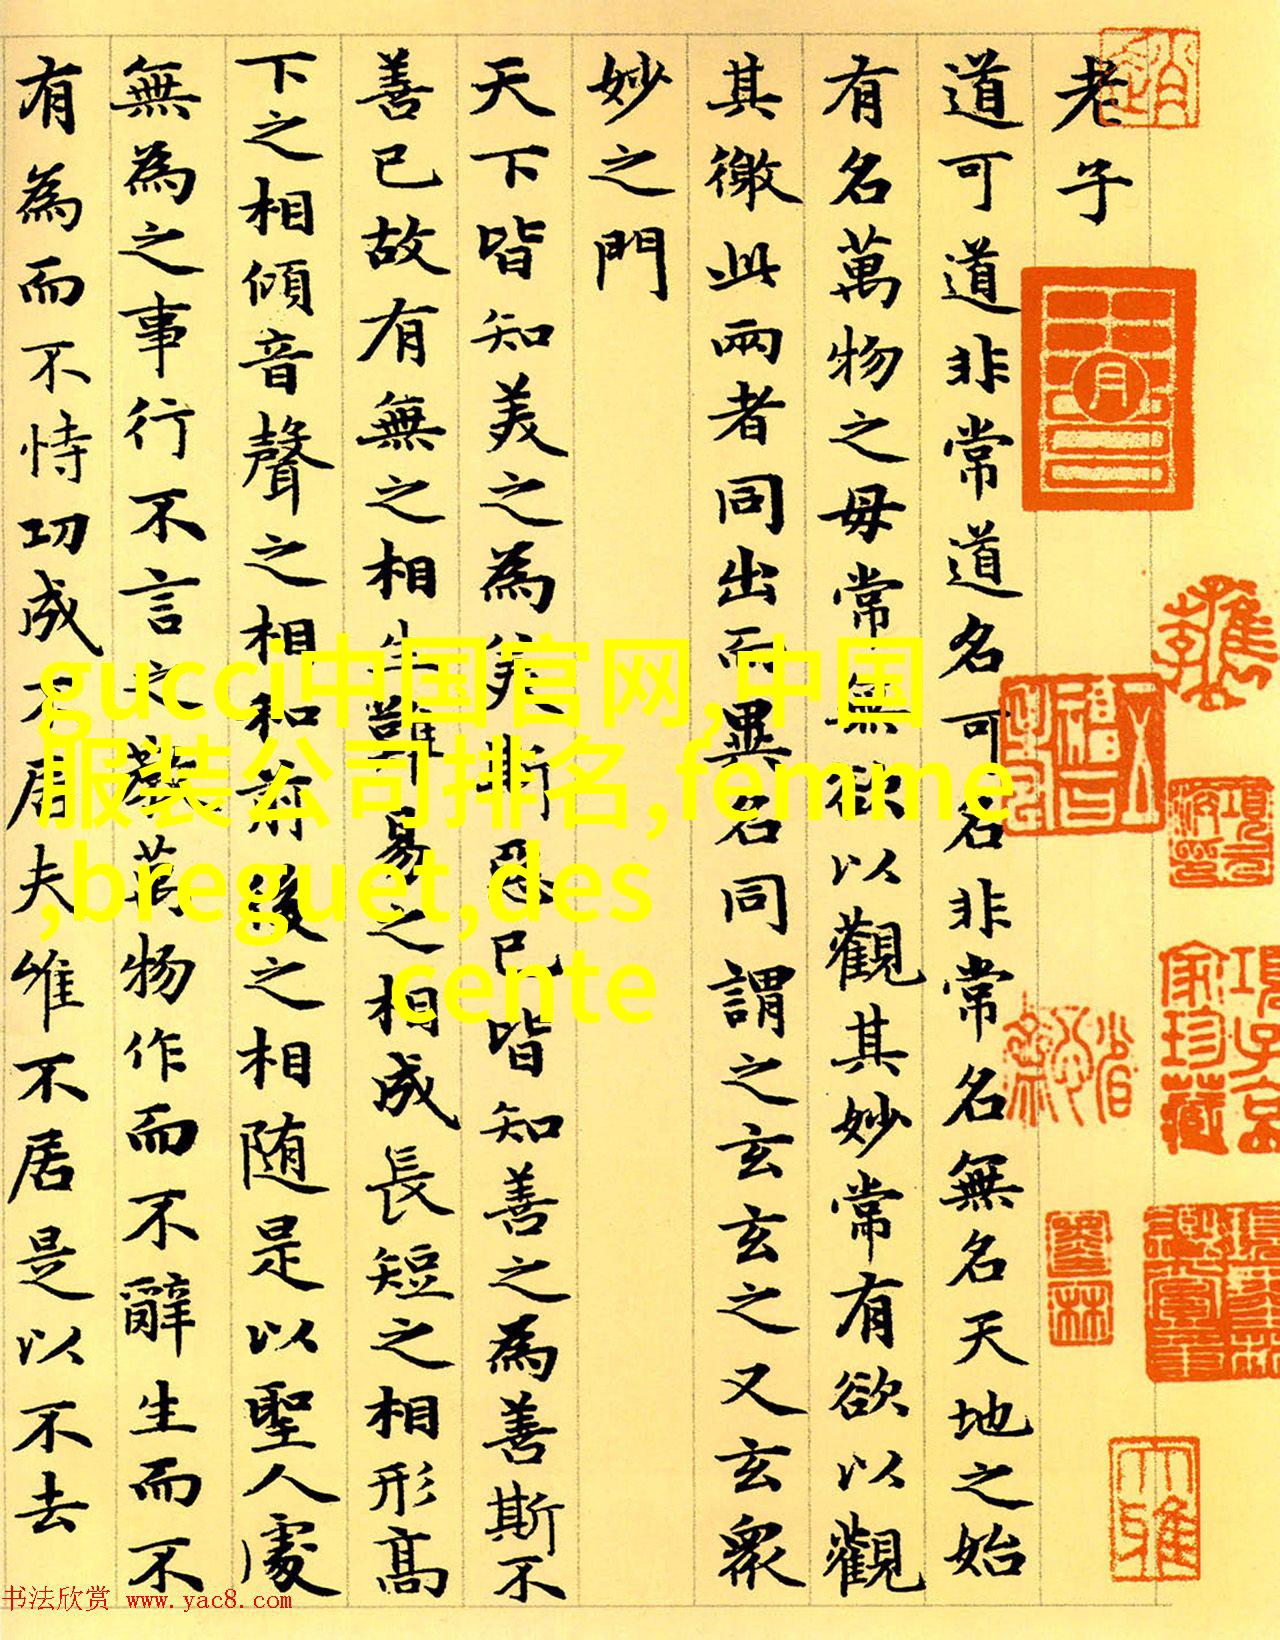 老子
道可道非常道名可名非常名無名天地之始
有名萬物之母常無欲以觀其妙常有欲以觀
其徼此兩者同出而異名同謂之玄玄之又玄衆
妙之門
天下皆知美之為美斯惡已皆知善之為善斯不
善已故有無之相生難易之相成長短之相形高
下之相傾音聲之相和前後之相随是以聖人處
無為之事行不言之教萬物作而不辭生而不
有為而不恃功成不居夫唯不居是以不去
gucci中国官网,中国
服装公司排名,femme
,breguet,des
cente
书法欣赏 www.yac8.com
項子京
家珍藏
大雅